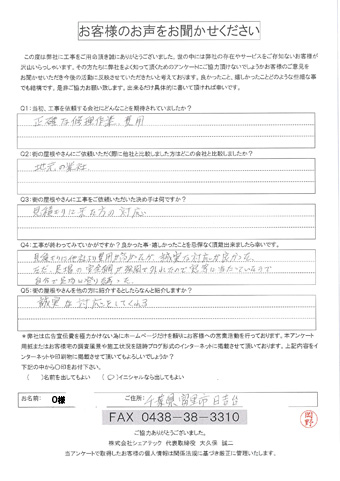 お客様のお声をお聞かせください
この度は弊社に工事をご用命頂き誠にありがとうございました。世の中には弊社の存在やサービスをご存知ないお客様が
沢山いらっしゃいます。その方たちに弊社をよく知って頂くためのアンケートにご協力頂けないでしょうかお客様のご意見を
お聞かせいただき今後の活動に反映させていただきたいと考えております。良かったこと、嬉しかったことどのような些細な事
でも結構です。是非ご協力お願い致します。出来るだけ具体的に書いて頂ければ幸いです。
Q1:当初、工事を依頼する会社にどんなことを期待されていましたか?
正確な修理作業、費用
Q2:街の屋根やさんにご依頼いただく際に他社と比較しました方はどこの会社と比較しましたか?
地元の業社
Q3:街の屋根やさんに工事をご依頼いただいた決め手は何ですか?
見積もりに来た方の対応
Q4:工事が終わってみていかがですか?良かった事・嬉しかったことを忌憚なく頂戴出来ましたら幸いです。
見積もりは他社より費用が高かったが、誠実な対応が良かった。
Q5:街の屋根やさんを他の方に紹介するとしたらなんと紹介しますか?
誠実な対応をしてくれる
*弊社は広告宣伝費を極力かけない為にホームページだけを頼りお客様への営業活動を行っております。本アンケート
用紙またはお客様宅の調査風景や施工状況を随時ブログ形式のインターネットに掲載させて頂いております。上記内容をイ
ンターネットや印刷物に掲載させて頂いてもよろしいでしょうか?
下記の中から〇印をお付下さい。
( )名前を出してもよい (〇)イニシャルなら出してもよい
お名前: O様 ご住所: 千葉県富里市日吉台
FAX 0438-38-3310
ご協力ありがとうございました。
株式会社シェアテック 代表取締役 大久保 誠二
当アンケートで記載されたお客様の個人情報は関係法規に基づき厳正に管理いたします。